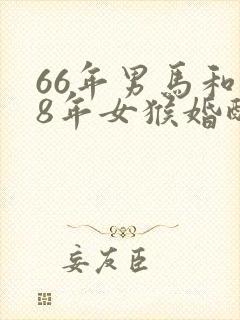 66年男馬和
8年女猴婚配
妄友臣